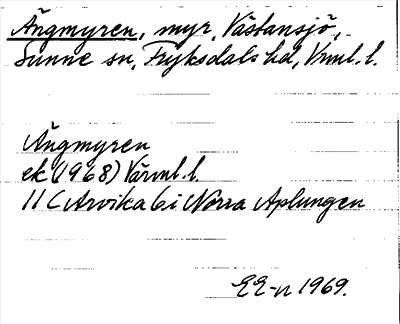 Ängmyren, myr, Västansjö,
Sunne sn, Fryksdals hd, Vrml. l.
Ängmyren
ek (1968) Värml. l.
11 C Arvika 6 i Norra Aplungen
EE-n 1969.